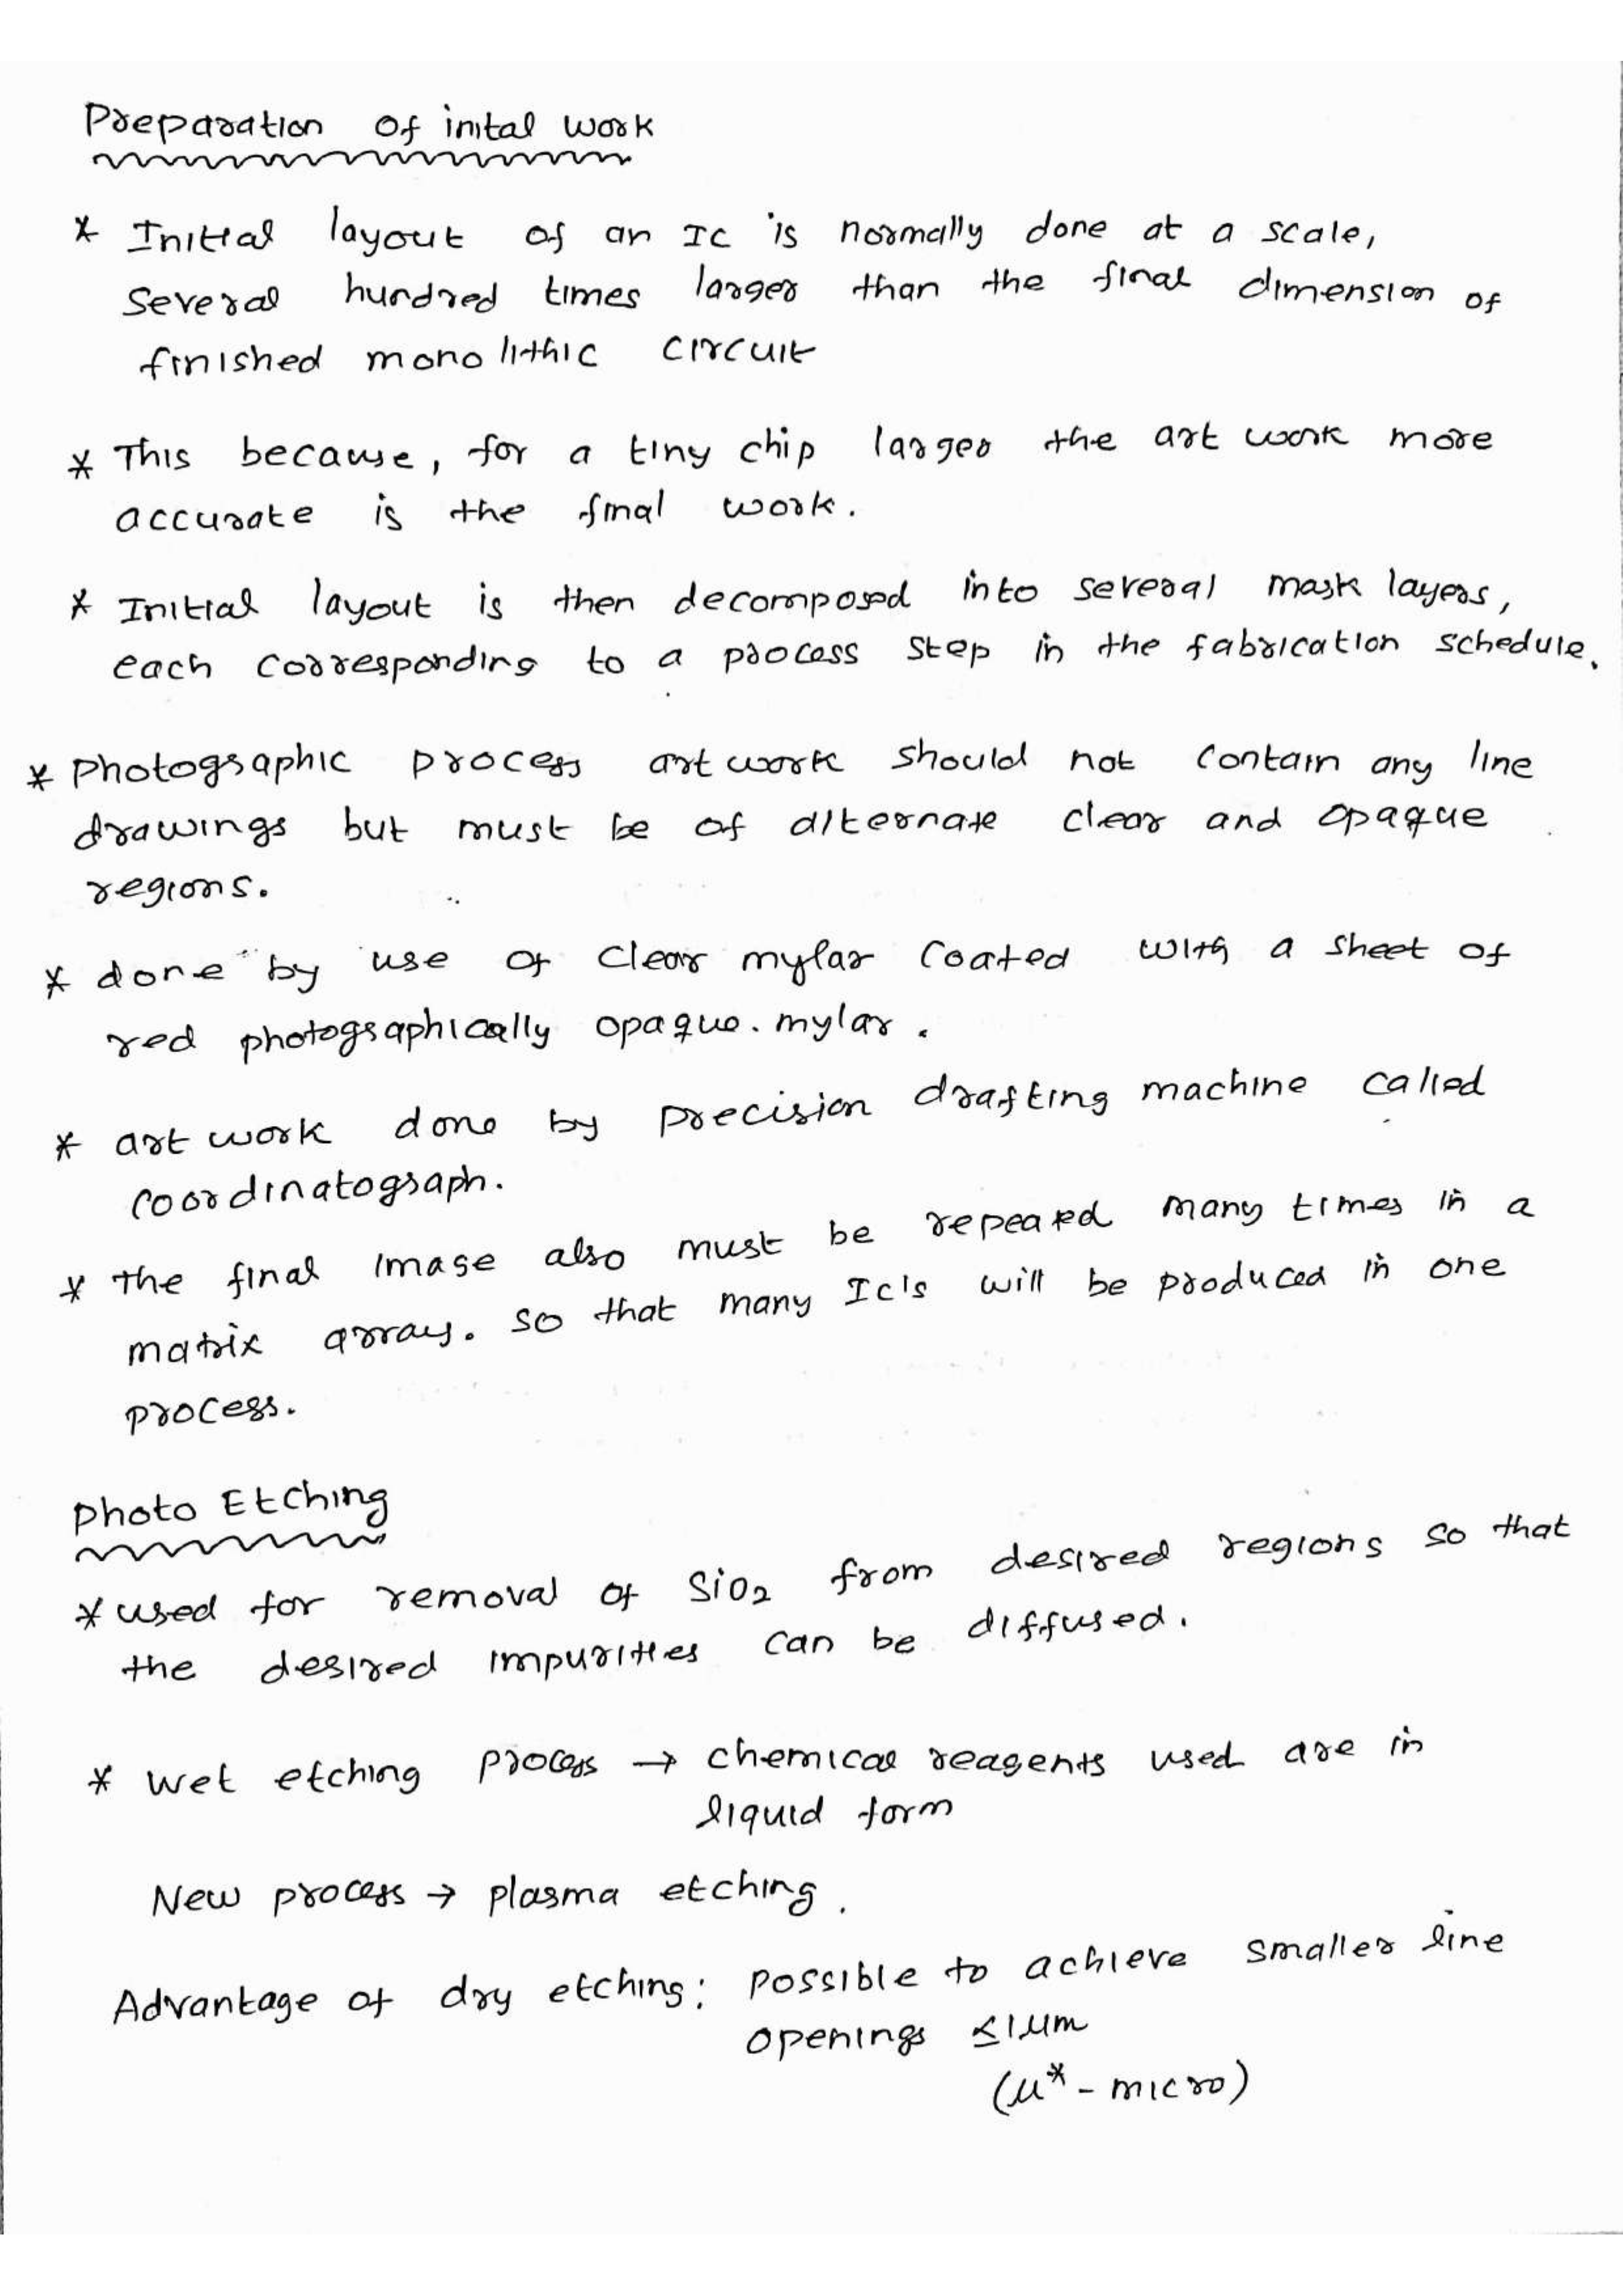 Preparation of inital work
* Initial layout of an IC is normally done at a scale,
several hundred times larger than the final dimension of
finished monolithic circuit
* This because, for a tiny chip larger the art work more
accurate is the final work.
* Initial layout is then decomposed into several mask layers,
each corresponding to a process step in the fabrication schedule.
* Photographic process art work should not contain any line
drawings but must be of alternate clear and opaque
regions.
* done by use of clear mylar coated with a sheet of
red photographically opaque. mylar.
* art work done by precision drafting machine called
coordinatograph.
* the final image also must be repeated many times in a
matrix array. so that many Ic's will be produced in one
process.
Photo Etching
* used for removal of SiO2 from desired regions so that
the desired impurities can be diffused.
* wet etching process → chemical reagents used are in
liquid form
New process → plasma etching.
Advantage of dry etching: possible to achieve smaller line
openings ≤1μm
(μ* - micro)